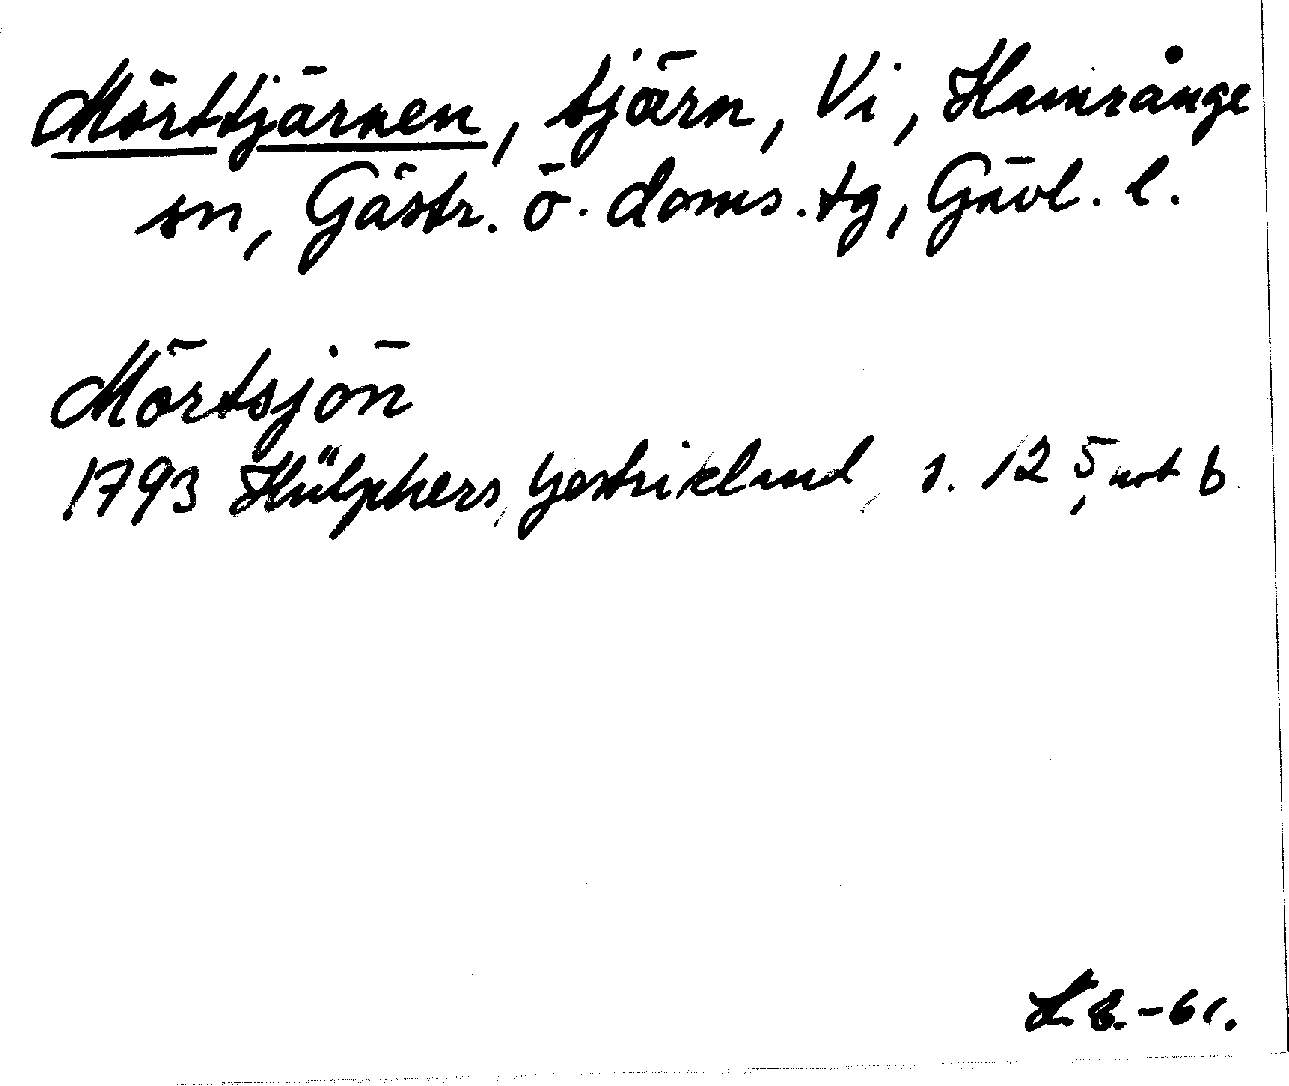 Mörttjärnen, tjärn, Vi, Hamrånge
sn, Gästr. ö. doms. tg, Gävl. l.
Mörtsjön
1793 Hülphers, Gestrikland, s. 125, not b
-61.